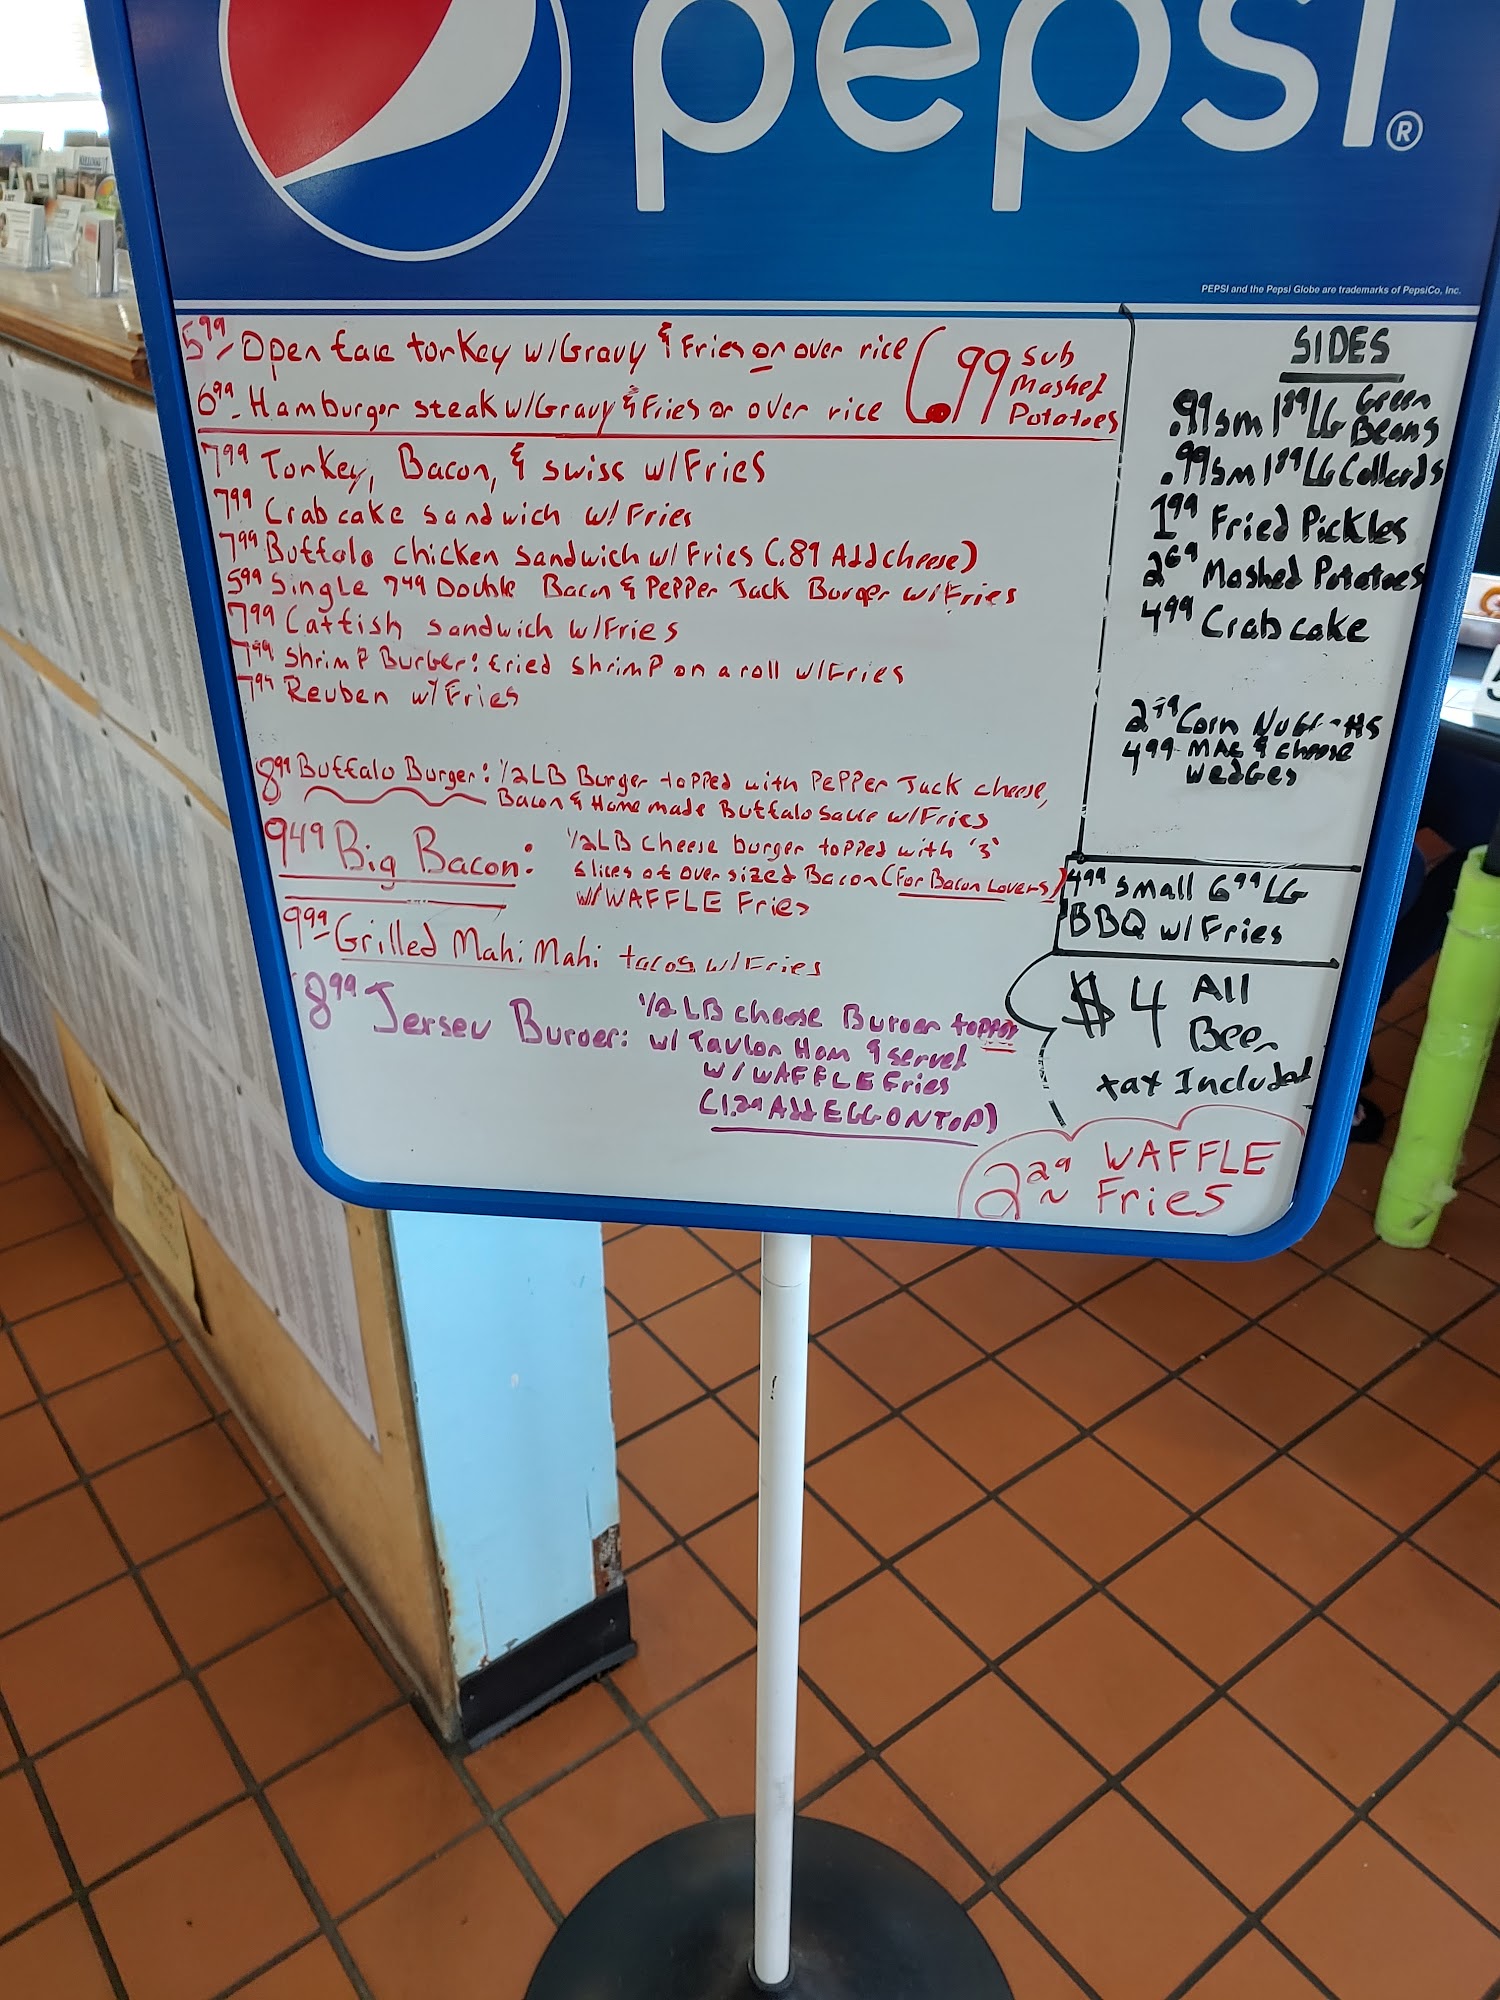 pepsi®
PEPSI and the Pepsi Globe are trademarks of PepsiCo, Inc.
5.99 - Open face turkey w/Gravy & Fries or over rice
6.99 - Hamburger steak w/Gravy & Fries or over rice
(.99 Sub
Mashed
Potatoes
7.99 Turkey, Bacon, & swiss w/Fries
7.99 Crab cake sandwich w/ Fries
7.99 Buffalo chicken sandwich w/ Fries (.89 Add cheese)
5.99 Single 7.49 Double Bacon & Pepper Jack Burger w/Fries
7.99 Catfish sandwich w/Fries
7.99 Shrimp Burger: fried shrimp on a roll w/Fries
7.99 Reuben w/ Fries
8.99 Buffalo Burger: 1/2 LB Burger topped with Pepper Jack cheese,
Bacon & Homemade Buffalo sauce w/Fries
9.49 Big Bacon: 1/2 LB cheese burger topped with "3"
slices of over sized Bacon (For Bacon Lovers)
w/ WAFFLE Fries
9.99 - Grilled Mahi Mahi tacos w/Fries
8.99 Jersey Burger: 1/2 LB cheese Burger topped
w/ Taylor Ham & served
w/ WAFFLE Fries
(1.29 Add EGG ON TOP)
SIDES
.99 sm 1.89 LG Green
Beans
.99 sm 1.89 LG Collards
1.99 Fried Pickles
2.69 Mashed Potatoes
4.99 Crab cake
Corn
4.99 MAC & cheese
wedges
4.99 small 6.99 LG
BBQ w/ Fries
$4 All
Beer
tax Included
2.29 ~ WAFFLE
Fries